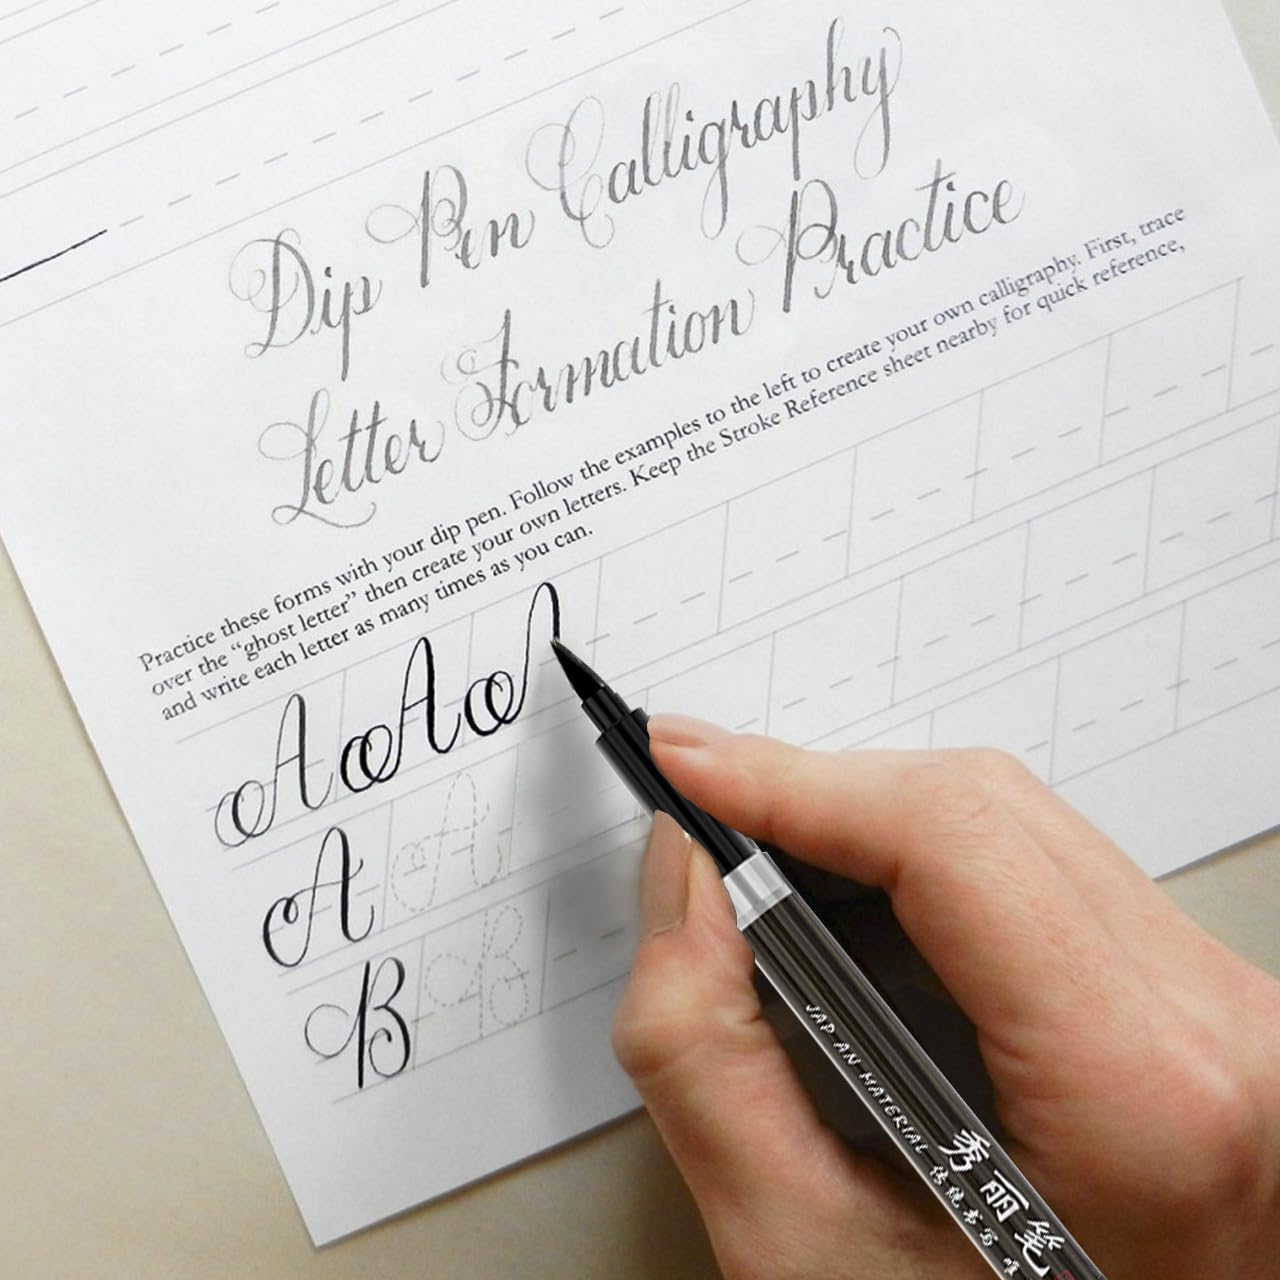 Dip Pen Calligraphy
Letter Formation Practice
Practice these forms with your dip pen. Follow the examples to the left to create your own calligraphy. First, trace
over the “ghost letter” then create your own letters. Keep the Stroke Reference sheet nearby for quick reference,
and write each letter as many times as you can.
A A
A A
B B
JAPAN MATERIAL 传统书写
秀丽笔